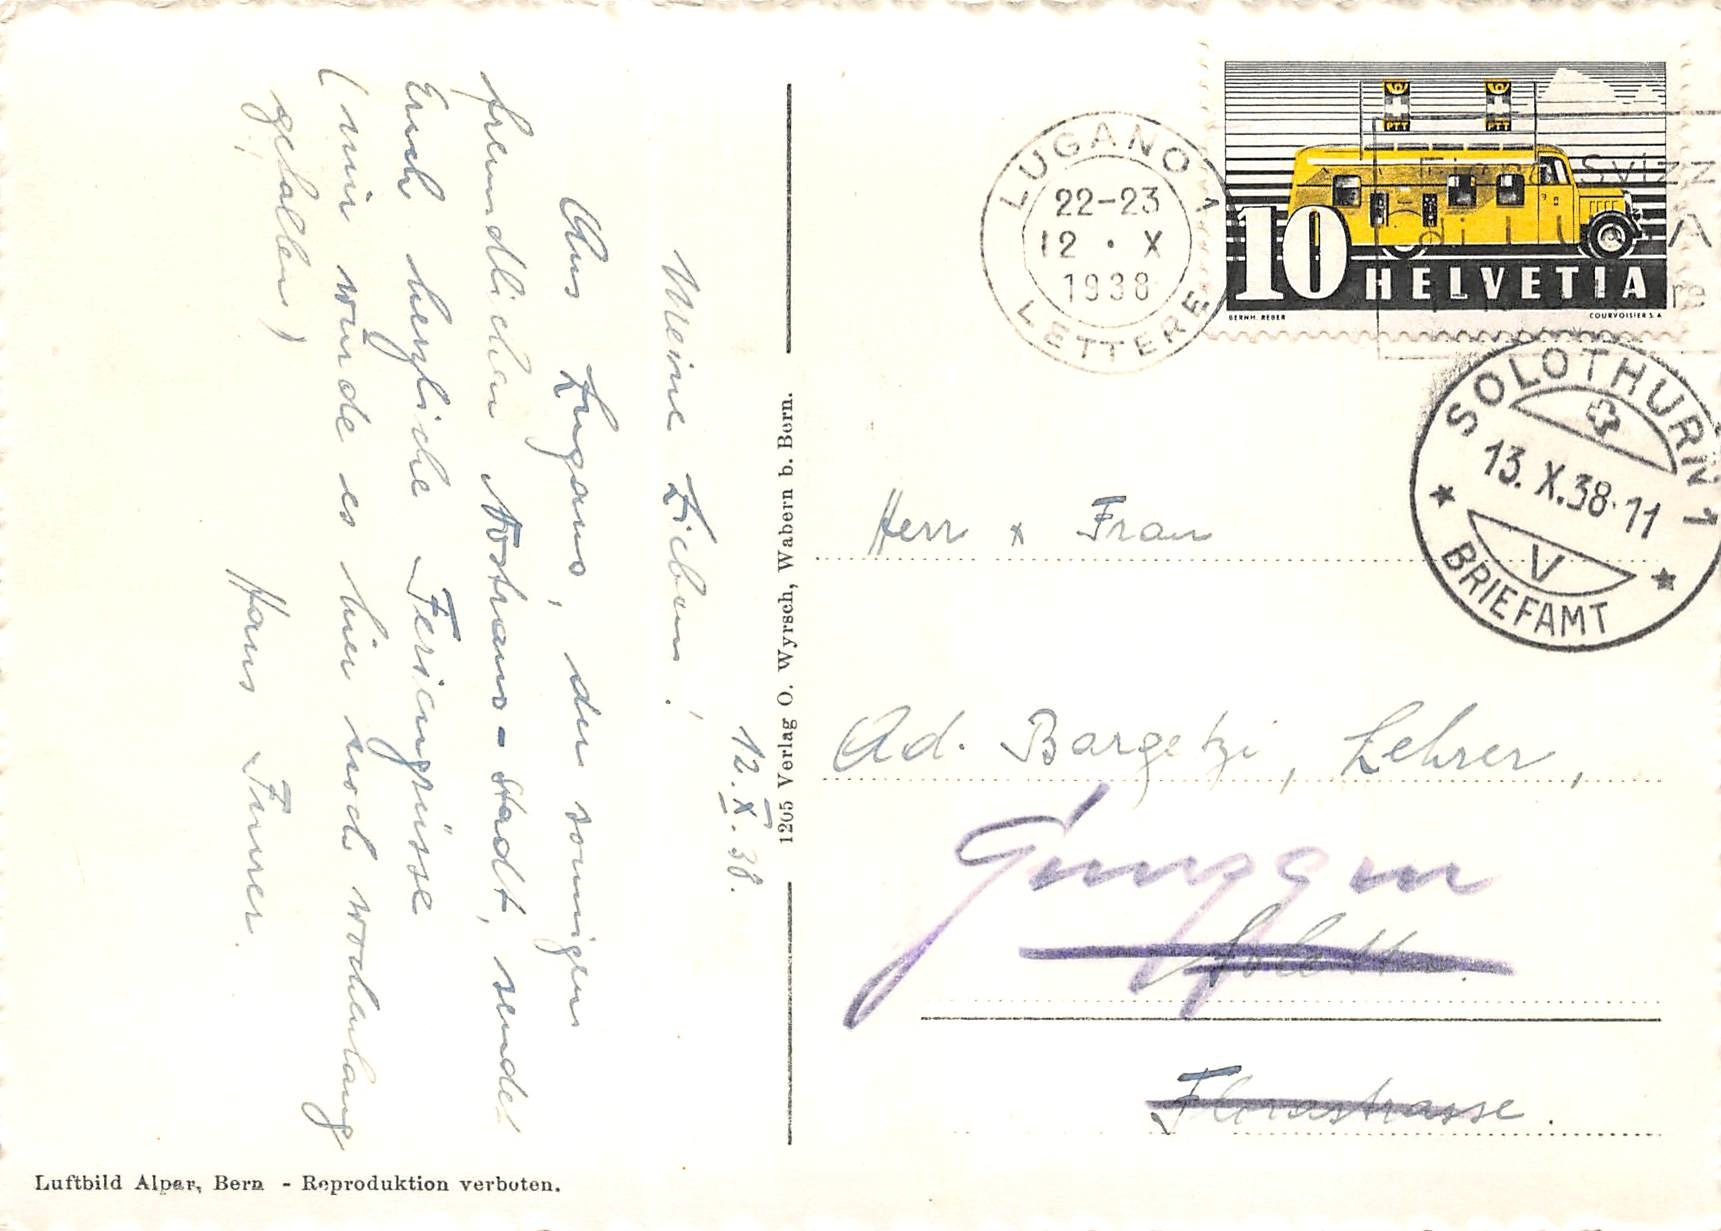 12.X.38.
Meine Lieben!
Aus Lugano, der sonnigen
freundlichen Nostrano-Stadt, sendet
Euch herzliche Feriengrüsse
(mir würde es hier noch wochenlang
gefallen)
Hans Furrer.
Luftbild Alpar, Bern - Reproduktion verboten.
1205 Verlag O. Wyrsch, Wabern b. Bern.
LUGANO 1
22-23
12 · X
1938
LETTERE
PTT PTT
Fiera Svizz
10 HELVETIA
BERNH. REBER COURVOISIER S.A.
SOLOTHURN 1
13.X.38·11
V
BRIEFAMT
Herr & Frau
Ad. Bargetzi, Lehrer,
Solothurn.
Florastrasse.